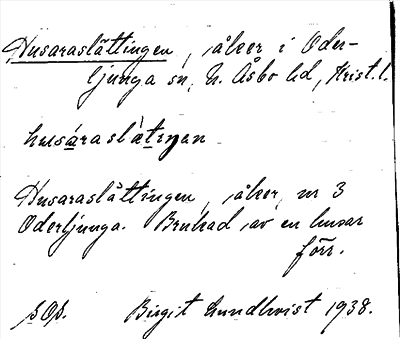 Husaraslättingen, åker i Oder-
ljunga sn, N. Åsbo hd, Krist. l.
husáraslàtiŋen
Husaraslättingen, åker, nr 3
Oderljunga. Brukad av en husar
förr.
s. Op. Birgit Lundkvist 1938.